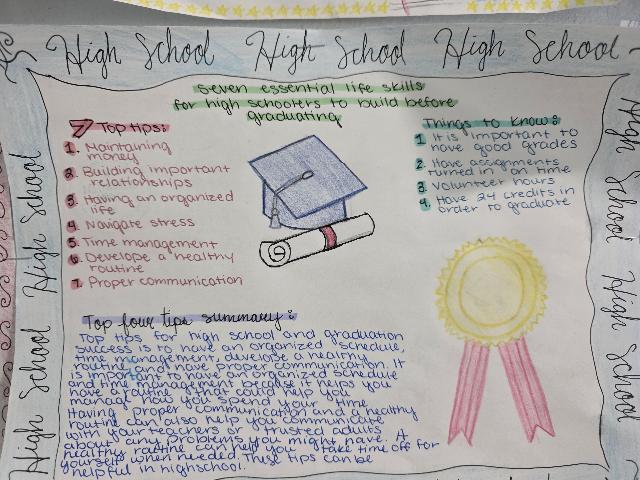 High School High School High School
Seven essential life skills
for high schoolers to build before
graduating
7 Top tips:
1. Maintaining
money
2. Building important
relationships
3. Having an organized
life
4. Navigate stress
5. Time management
6. Develope a healthy
routine
7. Proper communication
Things to know:
1. It is important to
have good grades
2. Have assignments
turned in on time
3. Volunteer hours
4. Have 24 credits in
order to graduate
Top four tips summary:
Top tips for high school and graduation
success is to have an organized schedule,
time management, develope a healthy
routine, and have proper communication. It
is important to have an organized schedule
and time management because it helps you
have a routine that could help you
manag you spend your time.
Having proper communication and a healthy
routine can also help you communicate
with your teachers or trusted adults
about any problems you might have. A
healthy routine can help you take time off for
yourself when needed. These tips can be
helpful in highschool.
High School
High School
High School
High School